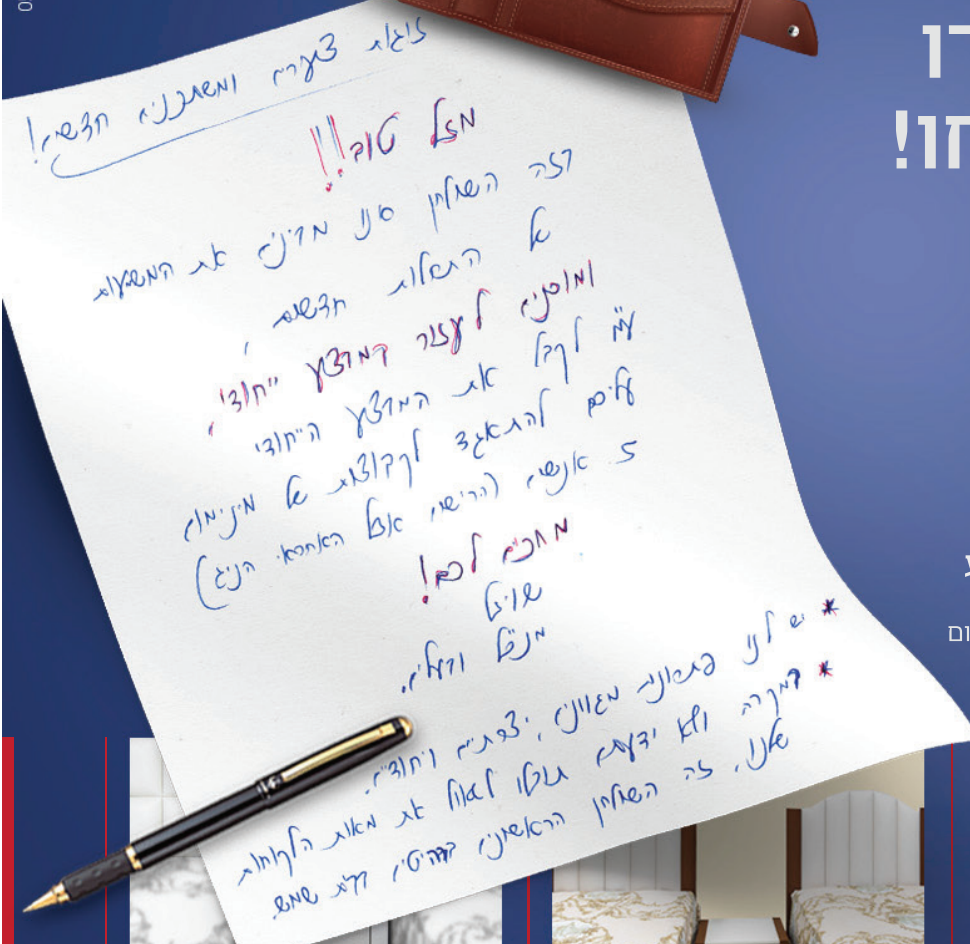 זוגות צעירים ומשתכנים חדשים!
מזל טוב!!!
בזה השולחן אנו מבינים את המשמעות
של התחלות חדשות,
ומוכנים לעזור במבצע ייחודי,
ע"מ לקבל את המבצע הייחודי
עליכם להתאגד לקבוצות של מינימום
5 אנשים (הרישום אצל האחראי הנ"ל)
מחכים לכם!
מנכ"ל ובעלים.
* יש לנו פתרונות מגוונים, יצירתיים וייחודיים.
* במקרה ולא ידעתם תוכלו לשאול את מאות הלקוחות
שלנו, זה השולחן הראשונים ברהיטים בבית שמש.
רו
חו!
ום